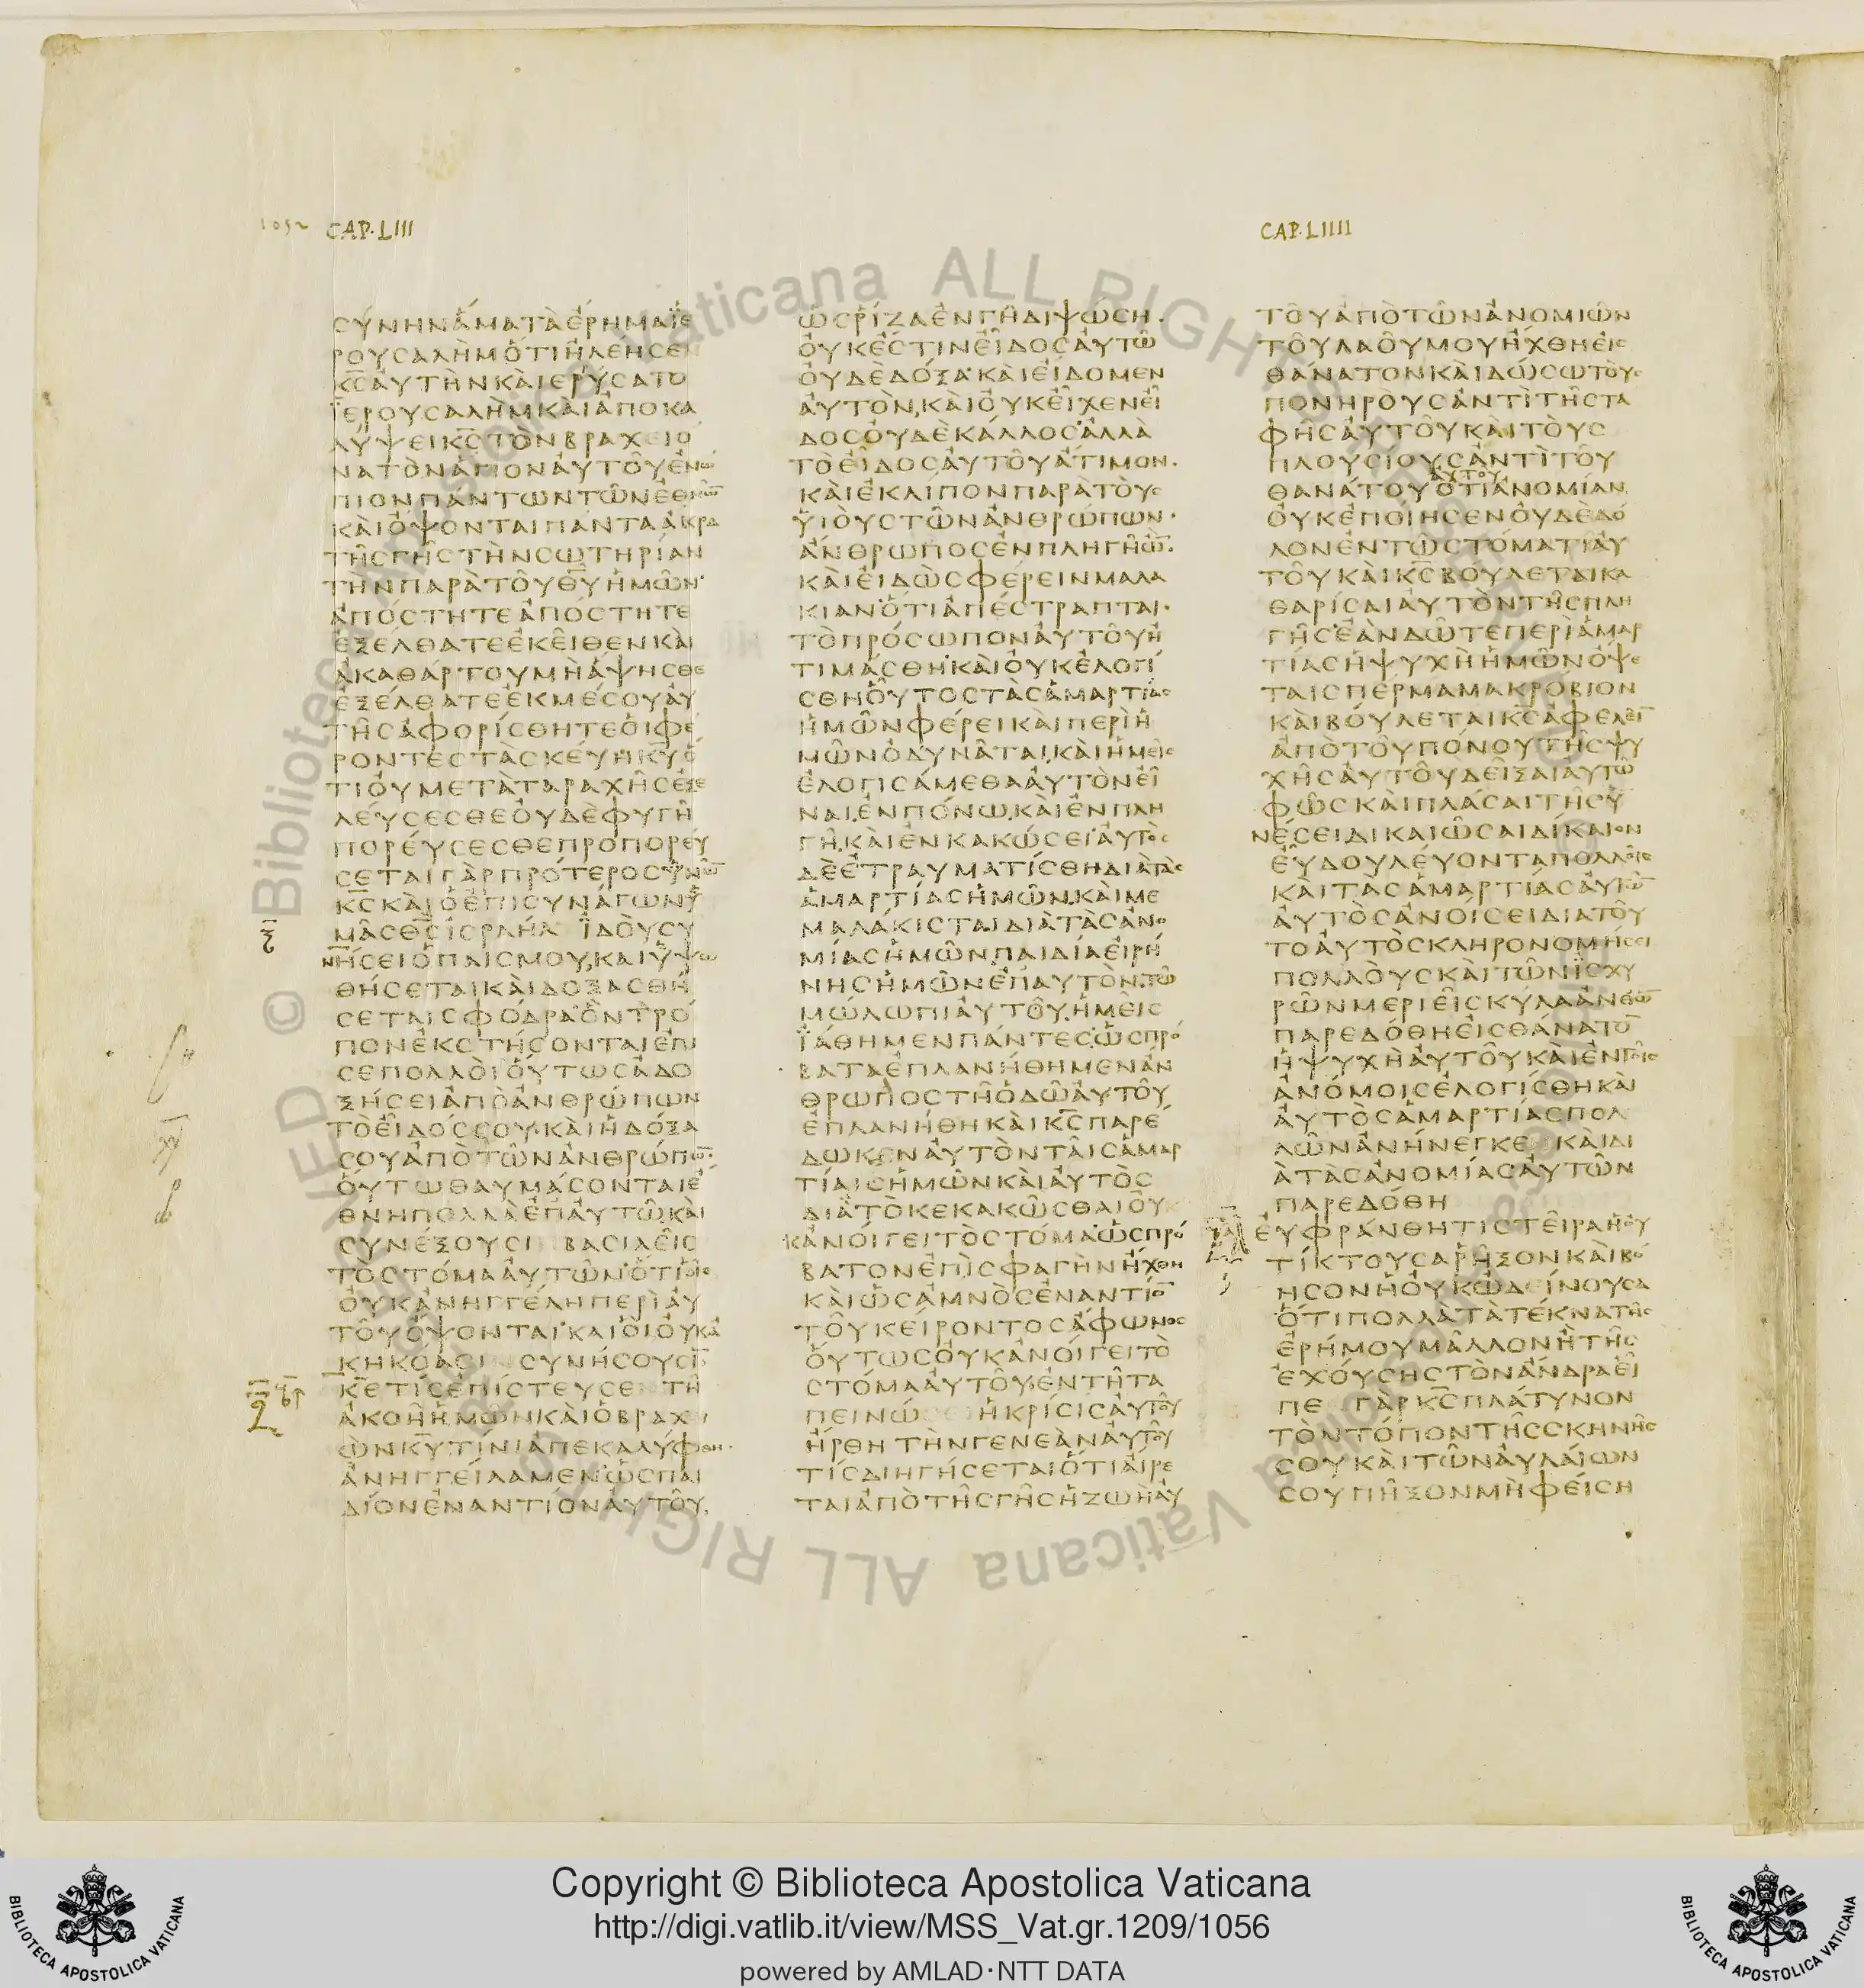 1052 CAP·LIII
ϹΎΝΗΝἍΜΑΤᾺἘΡΗΜΑΪΕ
ΡΟΥϹΑΛῊΜὍΤΙἨΛΈΗϹΕΝ
ΚϹΑΥΤῊΝΚΑῚΕΡΎϹΑΤΟ
ΪΕΡΟΥϹΑΛῊΜΚΑῚἈΠΟΚΑ
ΛΎΨΕΙΚϹΤῸΝΒΡΑΧΕΙΟ
ΝΑΤῸΝἍΓΙΟΝΑΥΤΟΥἘΝΩ
ΠΙΟΝΠΆΝΤΩΝΤΩΝἘΘΝΩ̅
ΚΑῚΌΨΟΝΤΑΙΠΆΝΤΑἌΚΡΑ
ΤΗϹΓΗϹΤῊΝϹΩΤΗΡΊΑΝ
ΤῊΝΠΑΡᾺΤΟΥΘΥἩΜΩΝ·
ἈΠΌϹΤΗΤΕἈΠΌϹΤΗΤΕ
ἘΞΈΛΘΑΤΕἘΚΕΙΘΕΝΚΑῚ
ἈΚΑΘΆΡΤΟΥΜῊἍΨΗϹΘΕ
ἘΞΈΛΘΑΤΕἘΚΜΈϹΟΥΑΥ
ΤΗϹἈΦΟΡΊϹΘΗΤΕΟΙΦΈ
ΡΟΝΤΕϹΤᾺϹΚΕΎΗΚΥὍ
ΤΙΟΥΜΕΤᾺΤΑΡΑΧΗϹἘΞΕ
ΛΕΎϹΕϹΘΕΟΥΔῈΦΥΓΗ
ΠΟΡΕΎϹΕϹΘΕΠΡΟΠΟΡΕΎ
ϹΕΤΑΙΓᾺΡΠΡΌΤΕΡΟϹΫΜΩ̅
ΚϹΚΑῚὉἘΠΙϹΥΝΆΓΩΝΫ
ΜΑϹΘϹΙϹΡΑΗΛ ΪΔΟΎϹΥ
ΝΉϹΕΙὉΠΑΙϹΜΟΥ,ΚΑΙΫΨΩ
ΘΉϹΕΤΑΙΚΑῚΔΟΞΑϹΘΉ
ϹΕΤΑΙϹΦΌΔΡΑ·ὋΝΤΡΌ
ΠΟΝἘΚϹΤΉϹΟΝΤΑΙἘΠΙ
ϹΕΠΟΛΛΟΙΟΥΤΩϹἈΔΟ
ΞΉϹΕΙἈΠῸἈΝΘΡΏΠΩΝ
ΤῸΕΙΔΌϹϹΟΥ·ΚΑῚἩΔΌΞΑ
ϹΟΥἈΠῸΤΩΝἈΝΘΡΏΠΩ̅·
ΟΥΤΩΘΑΥΜΆϹΟΝΤΑΙἜ
ΘΝΗΠΟΛΛᾺἘΠΑΥΤΩ,ΚΑῚ
ϹΥΝΈΞΟΥϹΙ ΒΑϹΙΛΕΙϹ
ΤῸϹΤΌΜΑΑΥΤΩΝ·ὍΤΙΟΙϹ
ΟΥΚἈΝΗΓΓΈΛΗΠΕΡῚΑΥ
ΤΟΥΌΨΟΝΤΑΙ·ΚΑΙΟΙΟΥΚΑ
ΚΗΚΌΑϹΙ ϹΥΝΉϹΟΥϹΙ̅
ΚΕΤΊϹἘΠΊϹΤΕΥϹΕ ΤΗ
ἈΚΟΗἩΜΩΝΚΑῚὉΒΡΑΧΙ
ΩΝΚΥΤΊΝΙἈΠΕΚΑΛΎΦΘΗ·
ἈΝΗΓΓΕΊΛΑΜΕΝ·ὩϹΠΑΙ
ΔΊΟΝἘΝΑΝΤΊΟΝΑΥΤΟΥ,
ὩϹΡΊΖΑἘΝΓΗΔΙΨΏϹΗ·
ΟΥΚἜϹΤΙΝΕΙΔΟϹΑΥΤΩ
ΟΥΔῈΔΌΞΑ·ΚΑῚΕΊΔΟΜΕΝ
ΑΥΤῸΝ,ΚΑῚΟΥΚΕΙΧΕΝΕΙ
ΔΟϹΟΥΔῈΚΆΛΛΟϹ·ἈΛΛᾺ
ΤῸΕΙΔΟϹΑΥΤΟΥἌΤΙΜΟΝ·
ΚΑῚἘΚΛΊΠΟΝΠΑΡᾺΤΟΥϹ
ΫΙΟΥϹΤΩΝἈΝΘΡΏΠΩΝ·
ἌΝΘΡΩΠΟϹἘΝΠΛΗΓΗΩ̅·
ΚΑῚΕΙΔῺϹΦΈΡΕΙΝΜΑΛΑ
ΚΙΑΝ·ὍΤΙἈΠΈϹΤΡΑΠΤΑΙ·
ΤῸΠΡΌϹΩΠΟΝΑΥΤΟΥΗ
ΤΙΜΆϹΘΗ·ΚΑῚΟΥΚἘΛΟΓΊ
ϹΘΗΟΥΤΟϹΤᾺϹἉΜΑΡΤΊΑϹ
ἩΜΩΝΦΈΡΕΙΚΑΙΠΕΡῚἩ
ΜΩΝὈΔΥΝΑΤΑΙ,ΚΑῚἩΜΕΙϹ
ἘΛΟΓΙϹΆΜΕΘΑΑΥΤῸΝΕΙ
ΝΑΙ,ἘΝΠΌΝΩ,ΚΑῚἘΝΠΛΗ
ΓΗ,ΚΑῚἘΝΚΑΚΏϹΕΙ·ΑΥΤῸϹ
ΔῈἘΤΡΑΥΜΑΤΊϹΘΗΔΙΑΤΑϹ
ἉΜΑΡΤΊΑϹἩΜΩΝ,ΚΑῚΜΕ
ΜΑΛΆΚΙϹΤΑΙΔΙᾺΤᾺϹἈΝΟ
ΜΊΑϹἩΜΩΝ,ΠΑΙΔΊΑΕΙΡΉ
ΝΗϹἩΜΩΝἘΠΑΥΤῸΝ.ΤΩ
ΜΏΛΩΠΙΑΥΤΟΥ,ἩΜΕΙϹ
ΪΆΘΗΜΕΝΠΆΝΤΕϹ,ὩϹΠΡΌ
ΒΑΤΑἘΠΛΑΝΉΘΗΜΕΝἌΝ
ΘΡΩΠΟϹΤΗὉΔΩΑΥΤΟΥ
ἘΠΛΑΝΉΘΗΚΑῚΚϹΠΑΡΈ
ΔΩΚΕΝΑΥΤῸΝΤΑΙϹἉΜΑΡ
ΤΊΑΙϹἩΜΩΝΚΑῚΑΥΤῸϹ
ΔΙᾺΤῸΚΕΚΑΚΩϹΘΑΙΟΥΚ
ΚἈΝΟΊΓΕΙΤῸϹΤΌΜΑ·ὩϹΠΡΌ
ΒΑΤΟΝἘΠῚϹΦΑΓῊΝἬΧΘΗ
ΚΑῚὩϹἈΜΝῸϹἘΝΑΝΤΊΟ̅
ΤΟΥΚΕΊΡΟΝΤΟϹἌΦΩΝΟϹ
ΟΥΤΩϹΟΥΚἈΝΟΊΓΕΙΤῸ
ϹΤΌΜΑΑΥΤΟΥ·ἘΝΤΗΤΑ
ΠΕΙΝΏϹΕΙ ἩΚΡΊϹΙϹΑΥΤΟΥ
ἬΡΘΗ ΤῊΝΓΕΝΕᾺΝΑΥΤΟΥ
ΤΊϹΔΙΗΓΉϹΕΤΑΙὍΤΙΑΊΡΕ
ΤΑΙἈΠῸΤΗϹΓΗϹἩΖΩῊΑΥ
CAP·LIIII
ΤΟΥἈΠῸΤΩΝἈΝΟΜΙΩΝ
ΤΟΥΛΑΟΥΜΟΥἬΧΘΗΕΙϹ
ΘΆΝΑΤΟΝΚΑῚΔΏϹΩΤΟΥϹ
ΠΟΝΗΡΟΥϹἈΝΤῚΤΗϹΤΑ
ΦΗϹΑΥΤΟΥΚΑῚΤΟΥϹ
ΠΛΟΥϹΊΟΥϹἈΝΤῚΤΟΥ
ΑΥΤΟΥ
ΘΑΝΆΤΟΥὍΤΙἈΝΟΜΊΑΝ
ΟΥΚἘΠΟΊΗϹΕΝΟΥΔΕΔΌ
ΛΟΝἘΝΤΩϹΤΌΜΑΤΙΑΥ
ΤΟΥΚΑῚΚϹΒΟΎΛΕΤΑΙΚΑ
ΘΑΡΊϹΑΙΑΥΤῸΝΤΗϹΠΛΗ
ΓΗϹ·ἘᾺΝΔΩΤΕΠΕΡῚἉΜΑΡ
ΤΊΑϹἩΨΥΧῊἩΜΩΝΌΨΕ
ΤΑΙϹΠΈΡΜΑΜΑΚΡΌΒΙΟΝ
ΚΑῚΒΟΎΛΕΤΑΙΚϹἈΦΕΛΕΙ̅
ἈΠῸΤΟΥΠΌΝΟΥΤΗϹΨΥ
ΧΗϹΑΥΤΟΥΔΕΙΞΑΙΑΥΤΩ
ΦΩϹΚΑῚΠΛΆϹΑΙΤΗϹΥ
ΝΈϹΕΙΔΙΚΑΙΩϹΑΙΔΊΚΑΙΟΝ
ΕΥΔΟΥΛΕΎΟΝΤΑΠΟΛΛΟΙϹ
ΚΑῚΤᾺϹἉΜΑΡΤΊΑϹΑΥΤΩ̅
ΑΥΤῸϹἈΝΟΊϹΕΙΔΙΑΤΟΥ
ΤΟΑΥΤῸϹΚΛΗΡΟΝΟΜΉϹΕΙ
ΠΟΛΛΟΥϹΚΑῚΤΩΝΪϹΧΥ
ΡΩΝΜΕΡΙΕΙϹΚΥΛΑἈΝΘΩ̅
ΠΑΡΕΔΌΘΗΕΙϹΘΆΝΑΤΟ̅
ἩΨΥΧῊΑΥΤΟΥΚΑῚἘΝΤΟΙϹ
ἈΝΌΜΟΙϹἘΛΟΓΊϹΘΗΚΑῚ
ΑΥΤῸϹἉΜΑΡΤΊΑϹΠΟΛ
ΛΩΝἈΝΉΝΕΓΚΕ ΚΑῚΔΙ
ᾺΤᾺϹἈΝΟΜΊΑϹΑΥΤΩΝ
ΠΑΡΕΔΌΘΗ
ΕΥΦΡΆΝΘΗΤΙϹΤΕΙΡΑἩΟΥ
ΤΊΚΤΟΥϹΑΡΗΞΟΝΚΑῚΒΌ
ΗϹΟΝἩΟΥΚΩΔΕΊΝΟΥϹΑ
ὍΤΙΠΟΛΛᾺΤᾺΤΈΚΝΑΤΗϹ
ἘΡΉΜΟΥΜΑΛΛΟΝἪΤΗϹ
ἘΧΟΎϹΗϹΤῸΝἌΝΔΡΑΕΙ
ΠΕ ΓᾺΡΚϹΠΛΆΤΥΝΟΝ
ΤῸΝΤΌΠΟΝΤΗϹϹΚΗΝΗϹ
ϹΟΥΚΑῚΤΩΝΑΥΛΑΊΩΝ
ϹΟΥΠΗΞΟΝΜῊΦΕΊϹΗ
© Biblioteca Apostolica Vaticana ALL RIGHTS RESERVED
Copyright © Biblioteca Apostolica Vaticana
http://digi.vatlib.it/view/MSS_Vat.gr.1209/1056
powered by AMLAD·NTT DATA
BIBLIOTECA APOSTOLICA VATICANA
BIBLIOTECA APOSTOLICA VATICANA